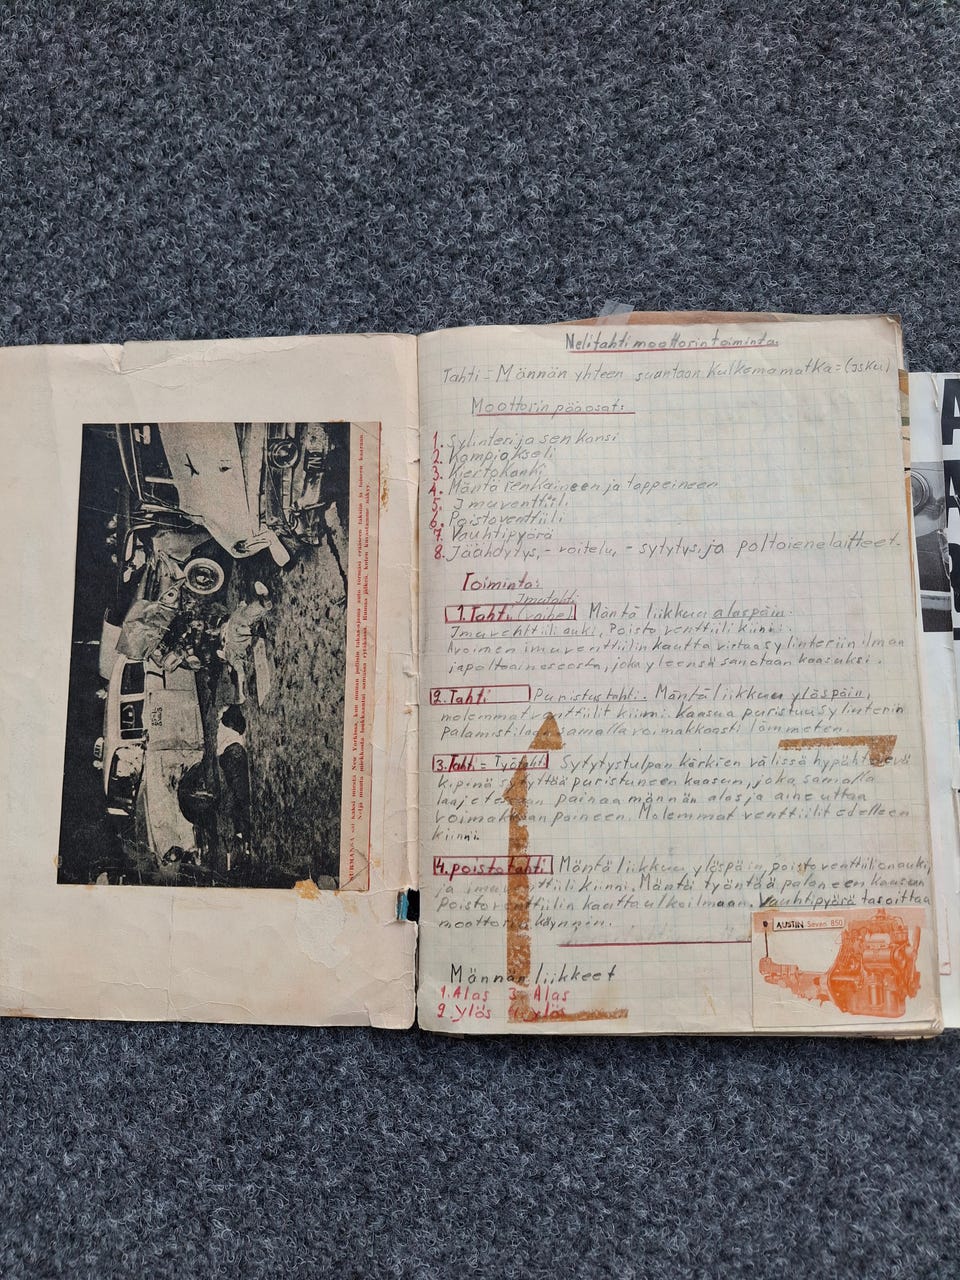 SURMANSA sai kaksi miestä New Yorkissa, kun numan poliisin takaa-ajama auto törmäsi eräiseen taksiin ja toiseen kaaraan.
Neljä muuta miekkosta loukkaantui samassa rytäkässä. Rumaa jälkeä, kuten kuvastamme näkyy.
Nelitahtimoottorin toiminta.
Tahti = Männän yhteen suuntaan kulkema matka = (isku)
Moottorin pääosat:
1. Sylinteri ja sen kansi
2. Kampiakseli
3. Kiertokanki
4. Mäntä renkaineen ja tappeineen
5. Imuventtiili
6. Poistoventtiili
7. Vauhtipyörä
8. Jäähdytys, - voitelu, - sytytys, ja polttoienelaitteet.
Toiminta:
Imutahti
1. Tahti (vaihe) Mäntä liikkuu alaspäin.
Imuventtiili auki, Poisto venttiili kiini.
Avoimen imuventtiilin kautta virtaa sylinteriin ilman
ja polttoaineseosta, joka yleensä sanotaan kaasuksi.
2. Tahti Puristustahti. Mäntä liikkuu ylöspäin,
molemmat venttiilit kiimi. Kaasua puristuu sylinterin
palamistilaan samalla voimakkaasti lämmeten.
3. Tahti = Työtahti Sytytystulpan kärkien välissä hypähtelevä
kipinä sytyttää puristuneen kaasun, joka samalla
laajetessaan painaa männän alas ja aiheuttaa
voimakkaan paineen. Molemmat venttiilit edelleen
kiinni.
4. poistotahti Mäntä liikkuu ylöspäin, poistoventtiili on auki,
ja imuventtiili kiinni. Mäntä työntää palaneen kaasun
Poistoventtiilin kautta ulkoilmaan. Vauhtipyörä tasoittaa
moottorin käynnin.
AUSTIN Seven 850
Männän liikkeet
1. Alas 3. Alas
2. ylös 4. ylös